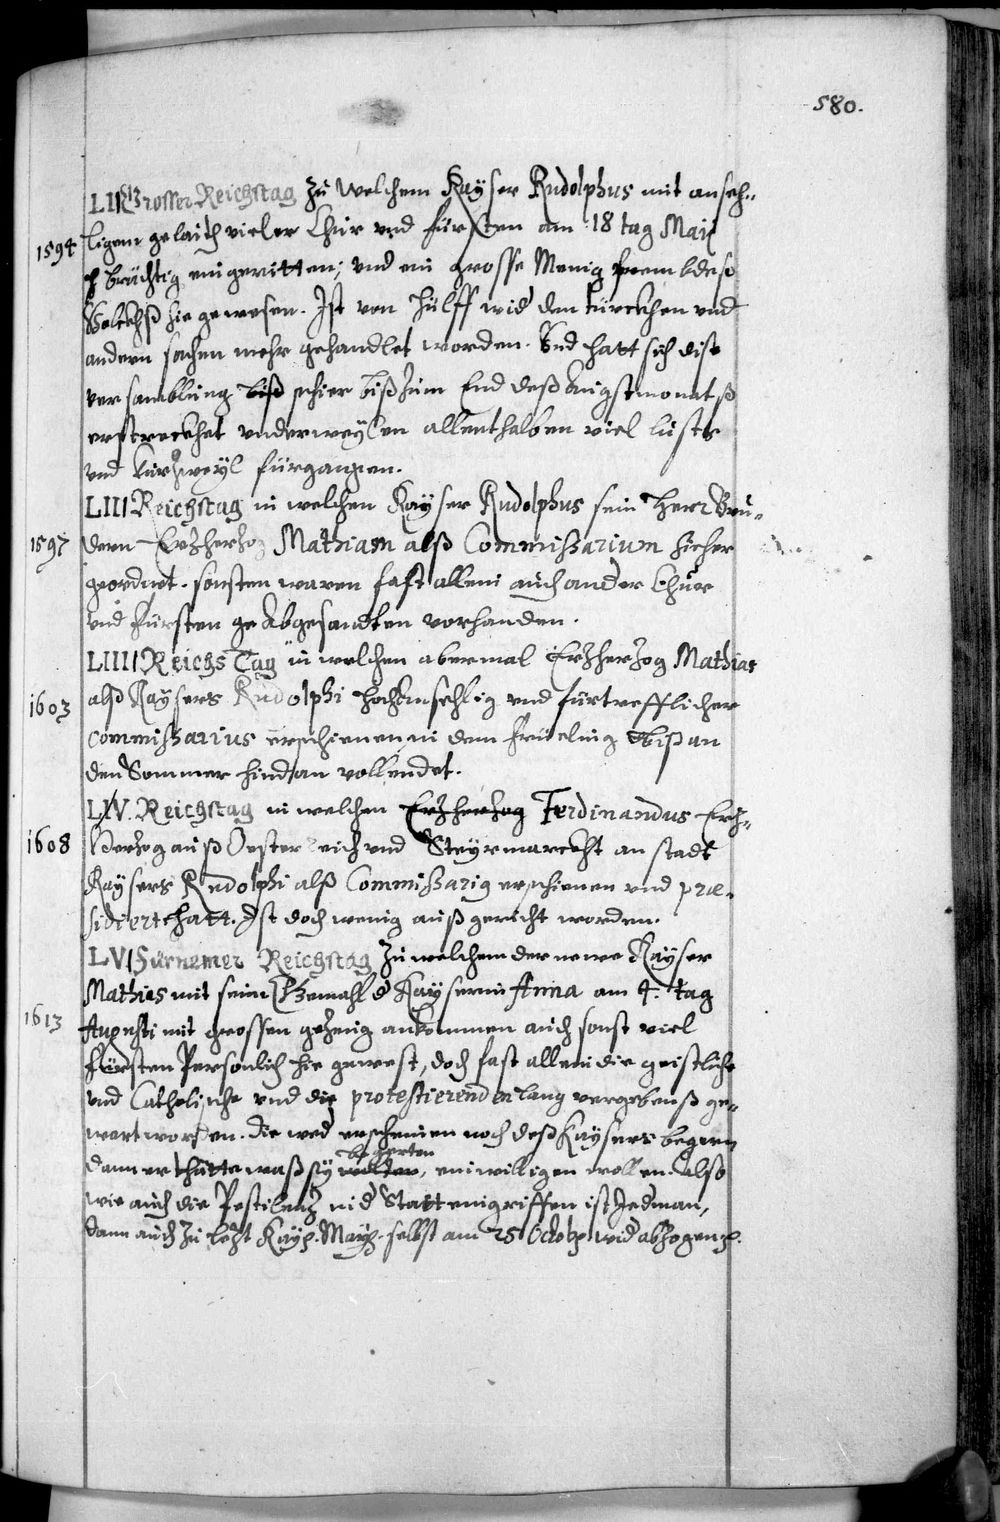 580.
LII Grosser Reichstag zu welchem Kayser Rudolphus mit anseh„
1594 ligem gelaith vieler Chur vnd fürsten am 18 tag Maij
prächtig eingeritten, vnd ein grosse Menig frembdeß
Volckhß hie gewesen. Ist von hülff wid den türckhen vnd
andern sachen mehr gehandlet worden. Vnd hatt sich dise
versamblung biß schier biß zum End deß Augstmonatß
erstreckhet vnderweylen allenthalben viel lusts
vnd kurzweyl fürgangen.
LIII Reichstag in welchen Kayser Rudolphus sein herr Bru„
1597 dern Erzherzog Mathiam alß Commißarium hieher
geordnet. sonsten waren fast allein auch ander Chur
vnd fürsten ge Abgesandten vorhanden.
LIIII Reichs Tag in welchen abermal Erzherzog Mathias
1603 alß Kaysers Rudolphi hochansehlig vnd fürtrefflicher
Commißarius erschienen in dem früeling biß an
den Sommer hindan vollendet.
LIV. Reichstag in welchen Erzherzog Ferdinandus Erz„
1608 Herzog auß Oesterreich vnd Steyrmarckht an stadt
Kaysers Rudolphi alß Commißarig erschienen vnd præ„
sidiert hatt. Ist doch wenig außgericht worden.
LV Fürnemer Reichstag zu welchem der newe Kayser
Mathias mit seim Gemahl d Kayserin Anna am 4. tag
1613 Augusti mit grossen gepreng ankommen auch sonst viel
fürsten Persönlich hie gewest, doch fast allein die geistliche
vnd Catholische vnd die protestierenden lang vergebenß ge„
wart worden. die wed erscheinen noch deß Kaysers begern
begerten
dann er hatte waß sy wolten, einwilligen wollen. Also
wie auch die Pestilenz in d Statt eingriffen ist Jedman,
dann auch zu letzt Kay. May. selbst am 25 Octob wid abzogen.